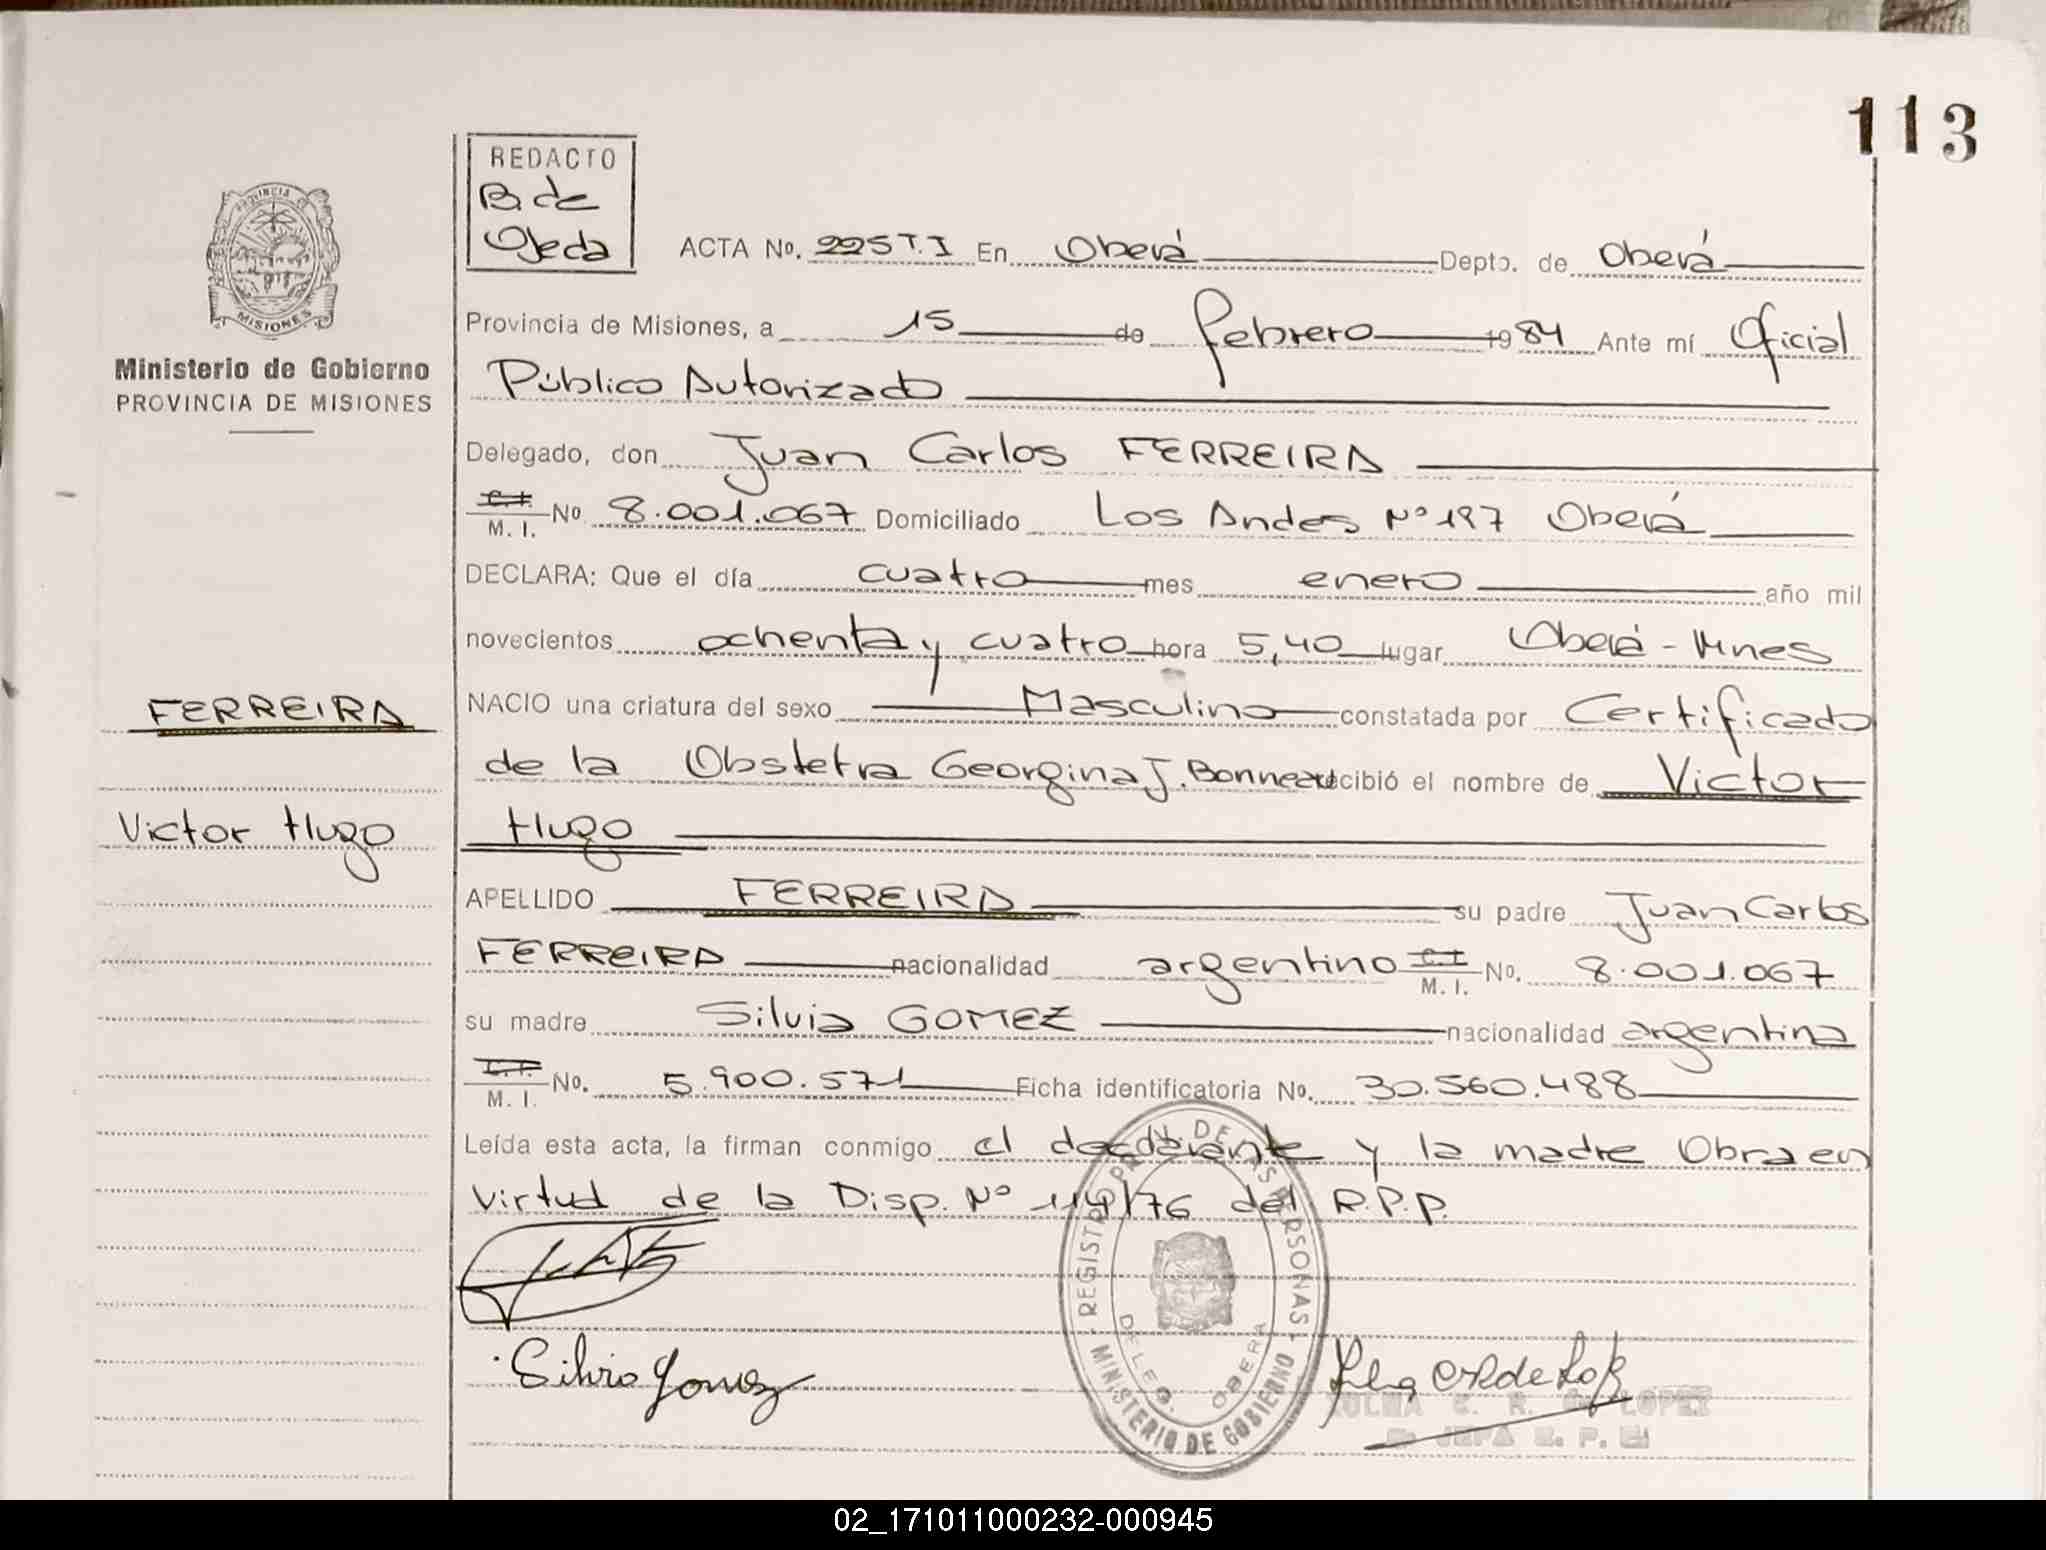 113
REDACTO
B. de
Ojeda
PROVINCIA DE
MISIONES
Ministerio de Gobierno
PROVINCIA DE MISIONES
ACTA No. 225 T. I En Oberá Depto. de Oberá
Provincia de Misiones, a 15 de febrero 1984 Ante mí Oficial
Público Autorizado
Delegado, don Juan Carlos FERREIRA
C.I. M. I. No. 8.001.067 Domiciliado Los Andes Nº 197 Oberá
DECLARA: Que el día cuatro mes enero año mil
novecientos ochenta y cuatro hora 5,40 lugar Oberá - Mnes
FERREIRA
NACIO una criatura del sexo Masculino constatada por Certificado
de la Obstetra Georgina J. recibió el nombre de Victor
Victor Hugo
Hugo
APELLIDO FERREIRA su padre Juan Carlos
FERREIRA nacionalidad argentino C.I. M. I. No. 8.001.067
su madre Silvia GOMEZ nacionalidad argentina
C.I. M. I. No. 5.900.571 Ficha identificatoria No. 30.560.488
Leída esta acta, la firman conmigo el declarante y la madre Obra en
Virtud de la Disp. Nº /76 del R.P.P.
REGISTRO PROV. DE LAS PERSONAS
MINISTERIO DE GOBIERNO
DELEG. OBERA
Silvia Gomez
LOPEZ
JEFA
02_171011000232-000945